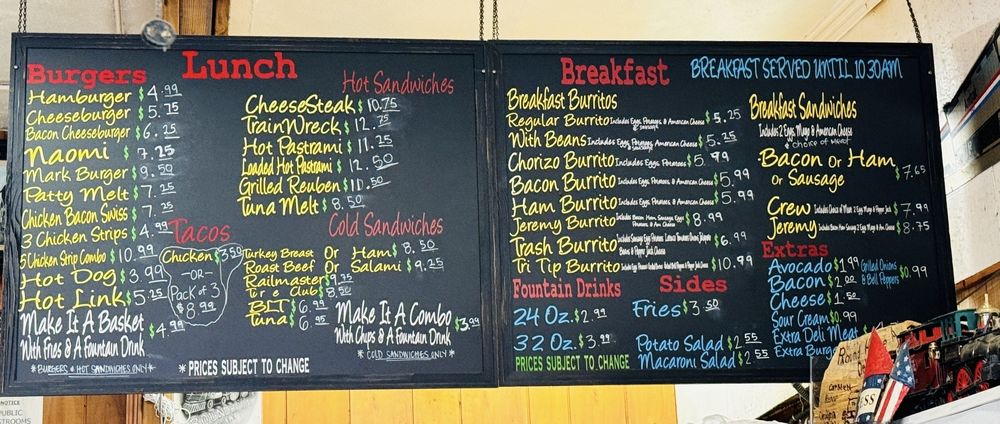 Lunch
Burgers
Hamburger $4.99
Cheeseburger $5.75
Bacon Cheeseburger $6.25
Naomi $7.25
Mark Burger $9.50
Patty Melt $7.25
Chicken Bacon Swiss $7.25
3 Chicken Strips $4.99
5 Chicken Strip Combo $10.99
Hot Dog $3.99
Hot Link $5.25
Make It A Basket
With Fries & A Fountain Drink $4.99
*BURGERS & HOT SANDWICHES ONLY*
Tacos
Chicken $3.50
-OR-
Pack of 3
$8.99
Hot Sandwiches
CheeseSteak $10.75
TrainWreck $12.75
Hot Pastrami $11.25
Loaded Hot Pastrami $12.50
Grilled Reuben $10.50
Tuna Melt $8.50
Cold Sandwiches
Turkey Breast Or Ham $8.50
Roast Beef Or Salami $9.25
Railmaster $9.25
Club $8.50
BLT $6.99
Tuna $6.95
Make It A Combo
With Chips & A Fountain Drink $3.99
*COLD SANDWICHES ONLY*
*PRICES SUBJECT TO CHANGE
Breakfast
BREAKFAST SERVED UNTIL 10:30AM
Breakfast Burritos
Regular Burrito Includes Eggs, Potatoes, & American Cheese $5.25
With Beans Includes Eggs, Potatoes, American Cheese $5.25
Chorizo Burrito Includes Eggs, Potatoes $5.99
Bacon Burrito Includes Eggs, Potatoes, & American Cheese $5.99
Ham Burrito Includes Eggs, Potatoes, & American Cheese $5.99
Jeremy Burrito Includes Bacon Ham Sausage Eggs Potatoes & Am Cheese $8.99
Trash Burrito $6.99
Tri Tip Burrito $10.99
Fountain Drinks
24 Oz. $2.99
32 Oz. $3.99
PRICES SUBJECT TO CHANGE
Sides
Fries $3.50
Potato Salad $2.55
Macaroni Salad $2.55
Breakfast Sandwiches
Includes 2 Eggs, Mayo & American Cheese
& choice of Meat
Bacon Or Ham
Or Sausage $7.65
Crew $7.99
Jeremy $8.75
Extras
Avocado $1.99
Bacon $2.00
Cheese $1.50
Sour Cream $0.99
Extra Deli Meat
Extra Burge
Grilled Onions
& Bell Peppers $0.99
NOTICE
PUBLIC
STROOMS